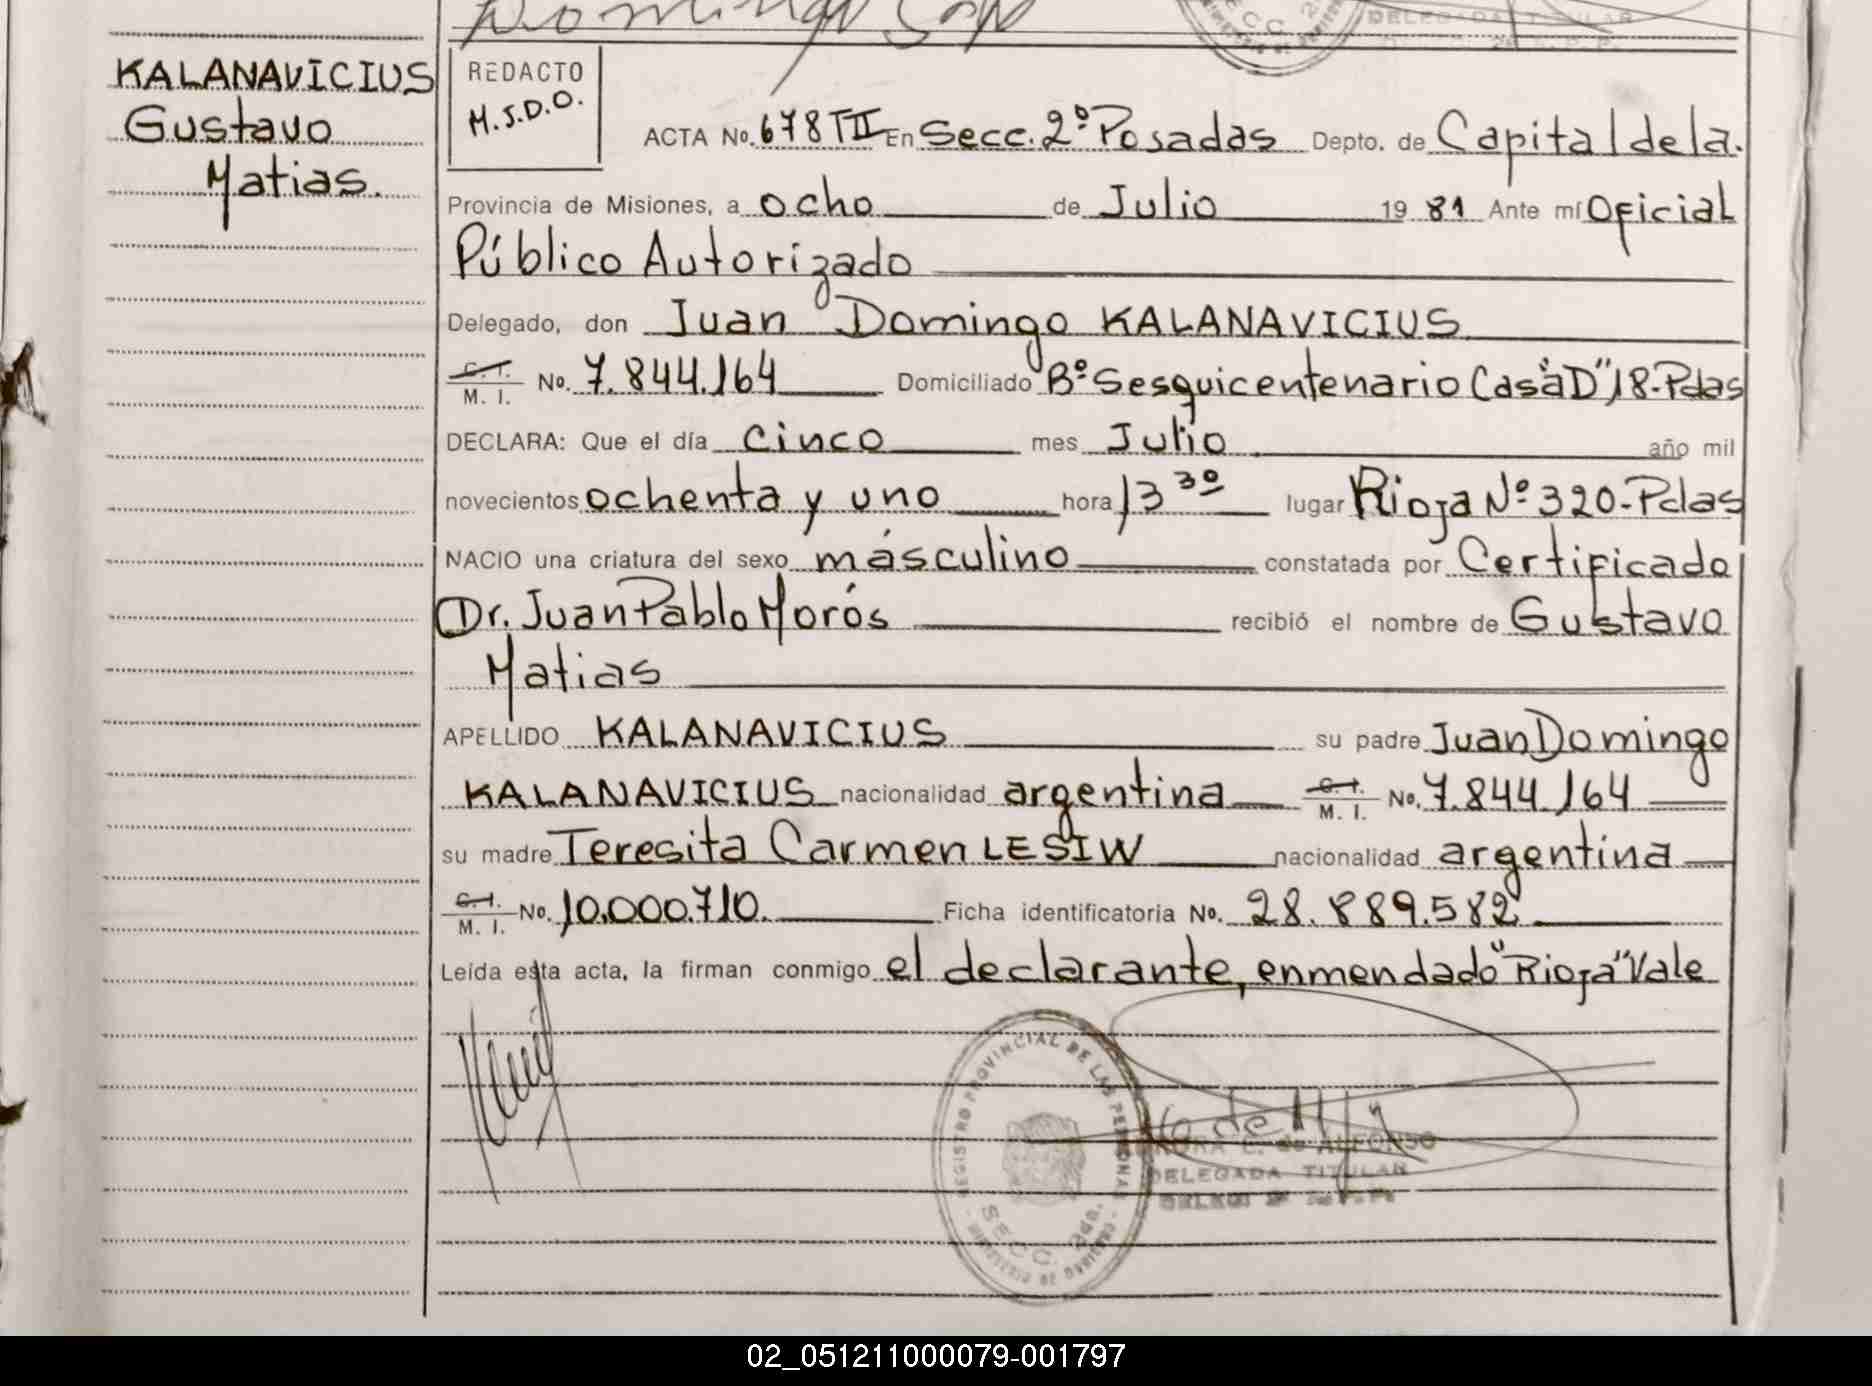 Domingo
DELEGADA TITULAR
KALANAVICIUS
Gustavo
Matias.
REDACTO
M.S.D.O.
ACTA No. 678 TII En Secc. 2º Posadas Depto. de Capital de la.
Provincia de Misiones, a ocho de Julio 19 81 Ante mí Oficial
Público Autorizado
Delegado, don Juan Domingo KALANAVICIUS
C. I. M. I. No. 7.844.164 Domiciliado Bº Sesquicentenario Casa "D" 18-Pdas
DECLARA: Que el día cinco mes Julio año mil
novecientos ochenta y uno hora 13 30 lugar Rioja Nº 320-Pdas
NACIO una criatura del sexo másculino constatada por Certificado
Dr. Juan Pablo Morós recibió el nombre de Gustavo
Matias
APELLIDO KALANAVICIUS su padre Juan Domingo
KALANAVICIUS nacionalidad argentina C. I. M. I. No. 7.844.164
su madre Teresita Carmen LESIW nacionalidad argentina
C. I. M. I. No. 10.000.710. Ficha identificatoria No. 28.889.582
Leída esta acta, la firman conmigo el declarante, enmendado "Rioja" Vale
REGISTRO PROVINCIAL DE LAS PERSONAS
SECC. 2da.
C. de ALFONSO
DELEGADA TITULAR
02_051211000079-001797